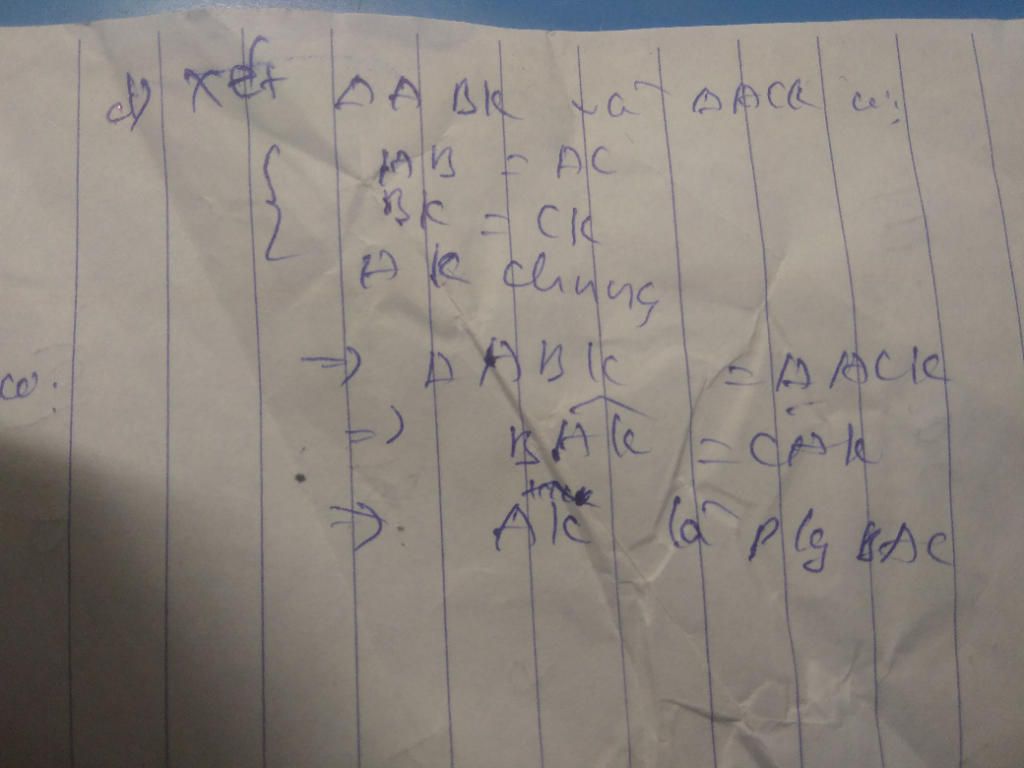 d) Xét ΔABK và ΔACK có:
{ AB = AC
BK = CK
AK chung
=> ΔABK = ΔACK
có:
=> BAK = CAK
=> AK là p/g BAC